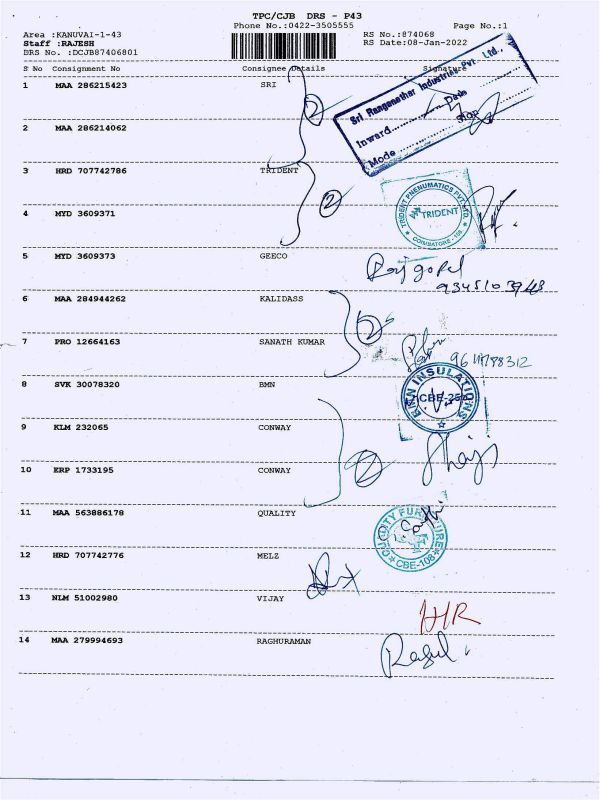 TPC/CJB DRS - P43
Phone No.:0422-3505555 Page No.:1
Area :KANUVAI-1-43 RS No.:874068
Staff :RAJESH RS Date:08-Jan-2022
DRS No. :DCJB87406801
S No Consignment No Consignee Details Signature
1 MAA 286215423 SRI
Sri Ranganathar Industries Pvt. Ltd.,
Inward Date
Mode Sign
2
2 MAA 286214062
3 HRD 707742786 TRIDENT
TRIDENT PNEUMATICS PVT. LTD.
TRIDENT
COIMBATORE - 108
2
4 MYD 3609371
5 MYD 3609373 GEECO
Rajgopal
6 MAA 284944262 KALIDASS
2
7 PRO 12664163 SANATH KUMAR
8 SVK 30078320 BMN
BMN INSULATIONS
CBE-25
9 KLM 232065 CONWAY
10 ERP 1733195 CONWAY
2
Shaji
11 MAA 563886178 QUALITY
QUALITY FURNITURE
CBE-108
12 HRD 707742776 MELZ
13 NLM 51002980 VIJAY
HR
14 MAA 279994693 RAGHURAMAN
Ragul